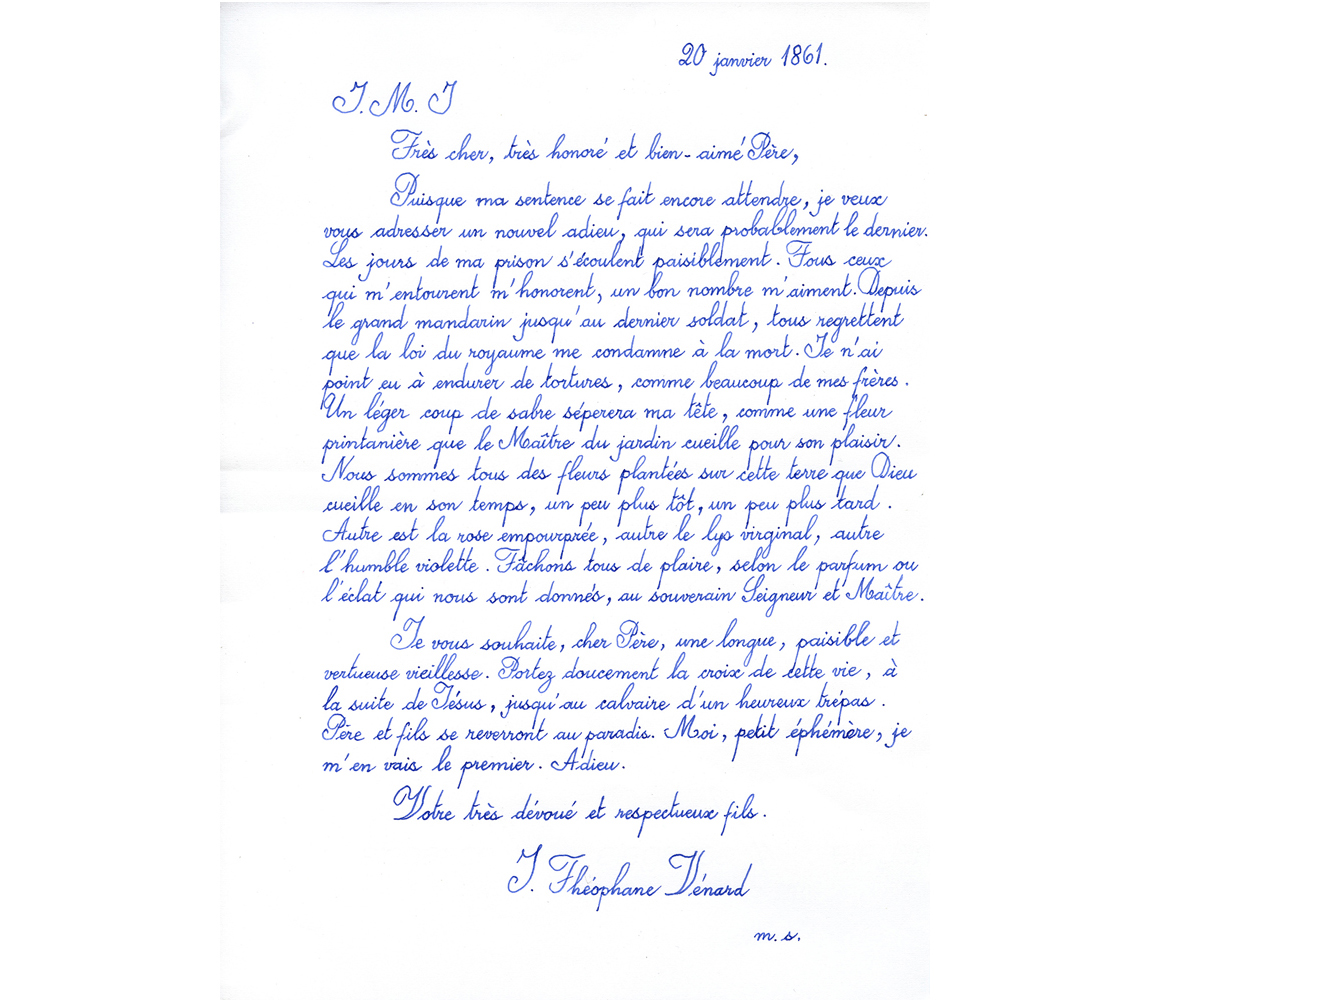 20 janvier 1861.
J. M. J
Très cher, très honoré et bien-aimé Père,
Puisque ma sentence se fait encore attendre, je veux
vous adresser un nouvel adieu, qui sera probablement le dernier.
Les jours de ma prison s'écoulent paisiblement. Tous ceux
qui m'entourent m'honorent, un bon nombre m'aiment. Depuis
le grand mandarin jusqu'au dernier soldat, tous regrettent
que la loi du royaume me condamne à la mort. Je n'ai
point eu à endurer de tortures, comme beaucoup de mes frères.
Un léger coup de sabre séperera ma tête, comme une fleur
printanière que le Maître du jardin cueille pour son plaisir.
Nous sommes tous des fleurs plantées sur cette terre que Dieu
cueille en son temps, un peu plus tôt, un peu plus tard.
Autre est la rose empourprée, autre le lys virginal, autre
l'humble violette. Tâchons tous de plaire, selon le parfum ou
l'éclat qui nous sont donnés, au souverain Seigneur et Maître.
Je vous souhaite, cher Père, une longue, paisible et
vertueuse vieillesse. Portez doucement la croix de cette vie, à
la suite de Jésus, jusqu'au calvaire d'un heureux trépas.
Père et fils se reverront au paradis. Moi, petit éphémère, je
m'en vais le premier. Adieu.
Votre très dévoué et respectueux fils.
J. Théophane Vénard
m. s.